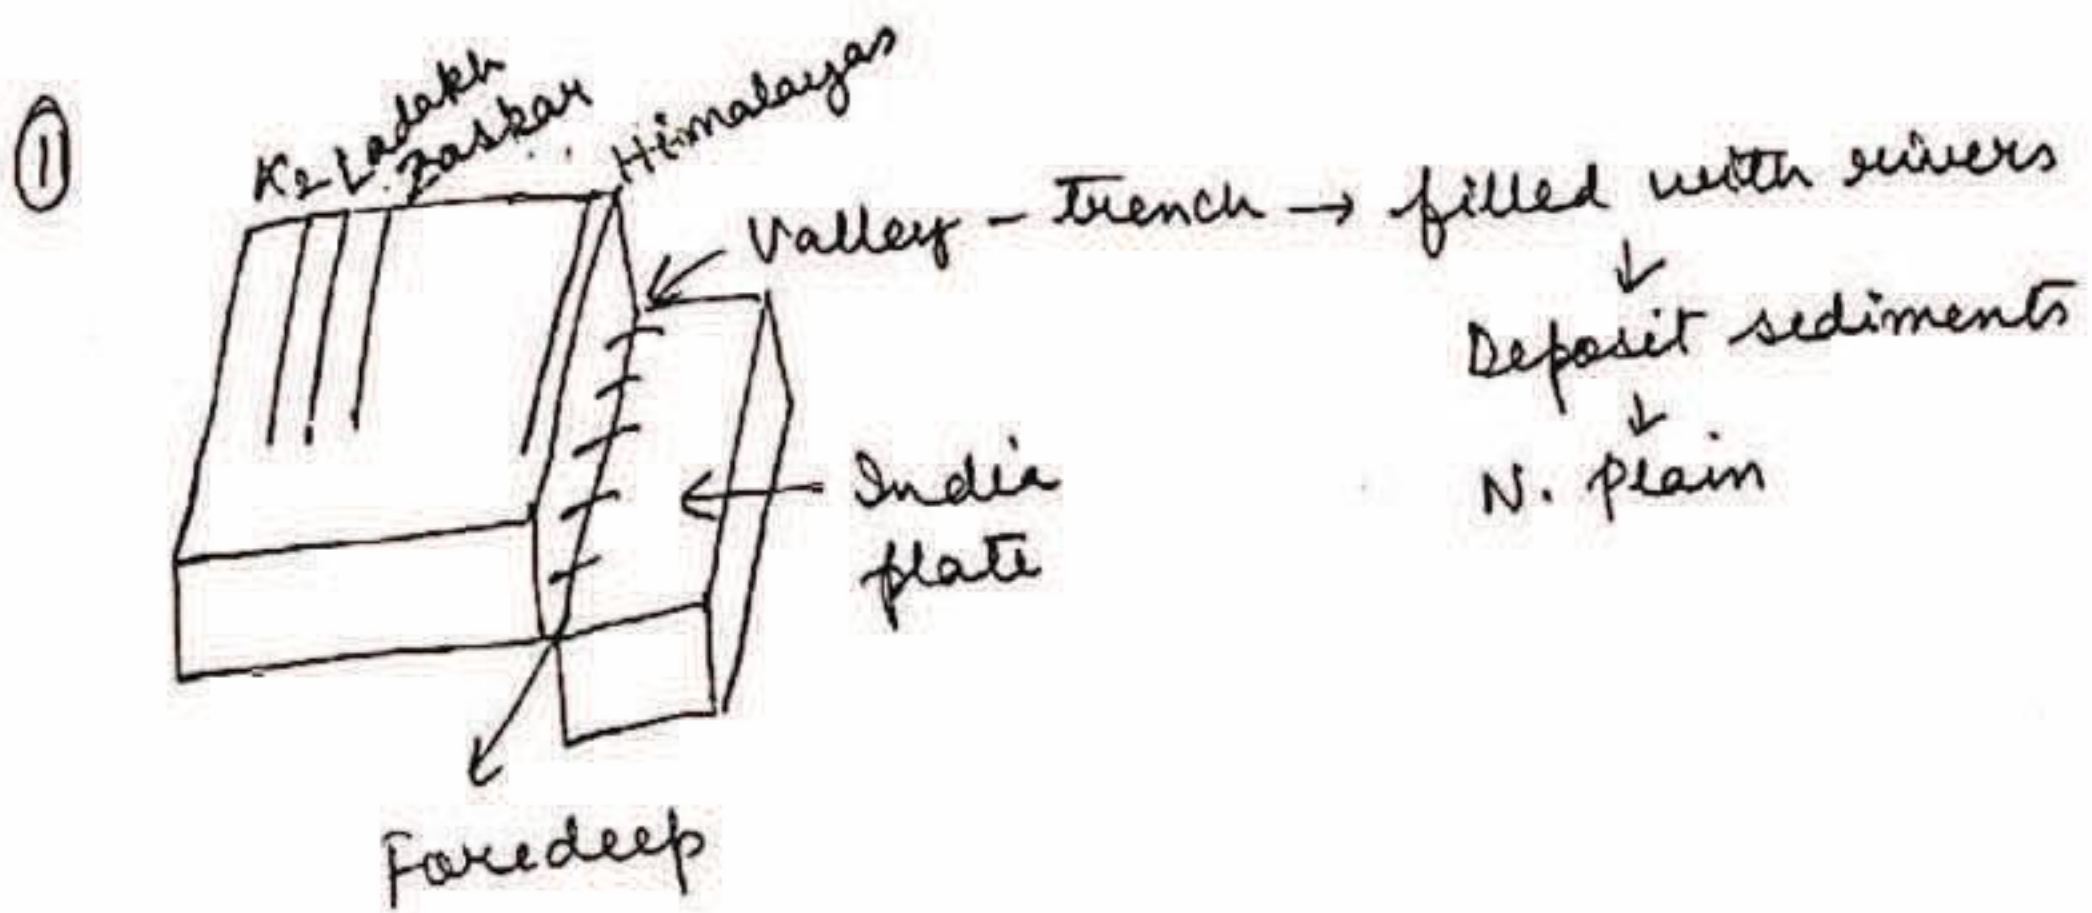 ①
K2 Ladakh
Zaskar
Himalayas
Valley – trench → filled with rivers
↓
Deposit sediments
↓
N. Plain
India
plate
Foredeep